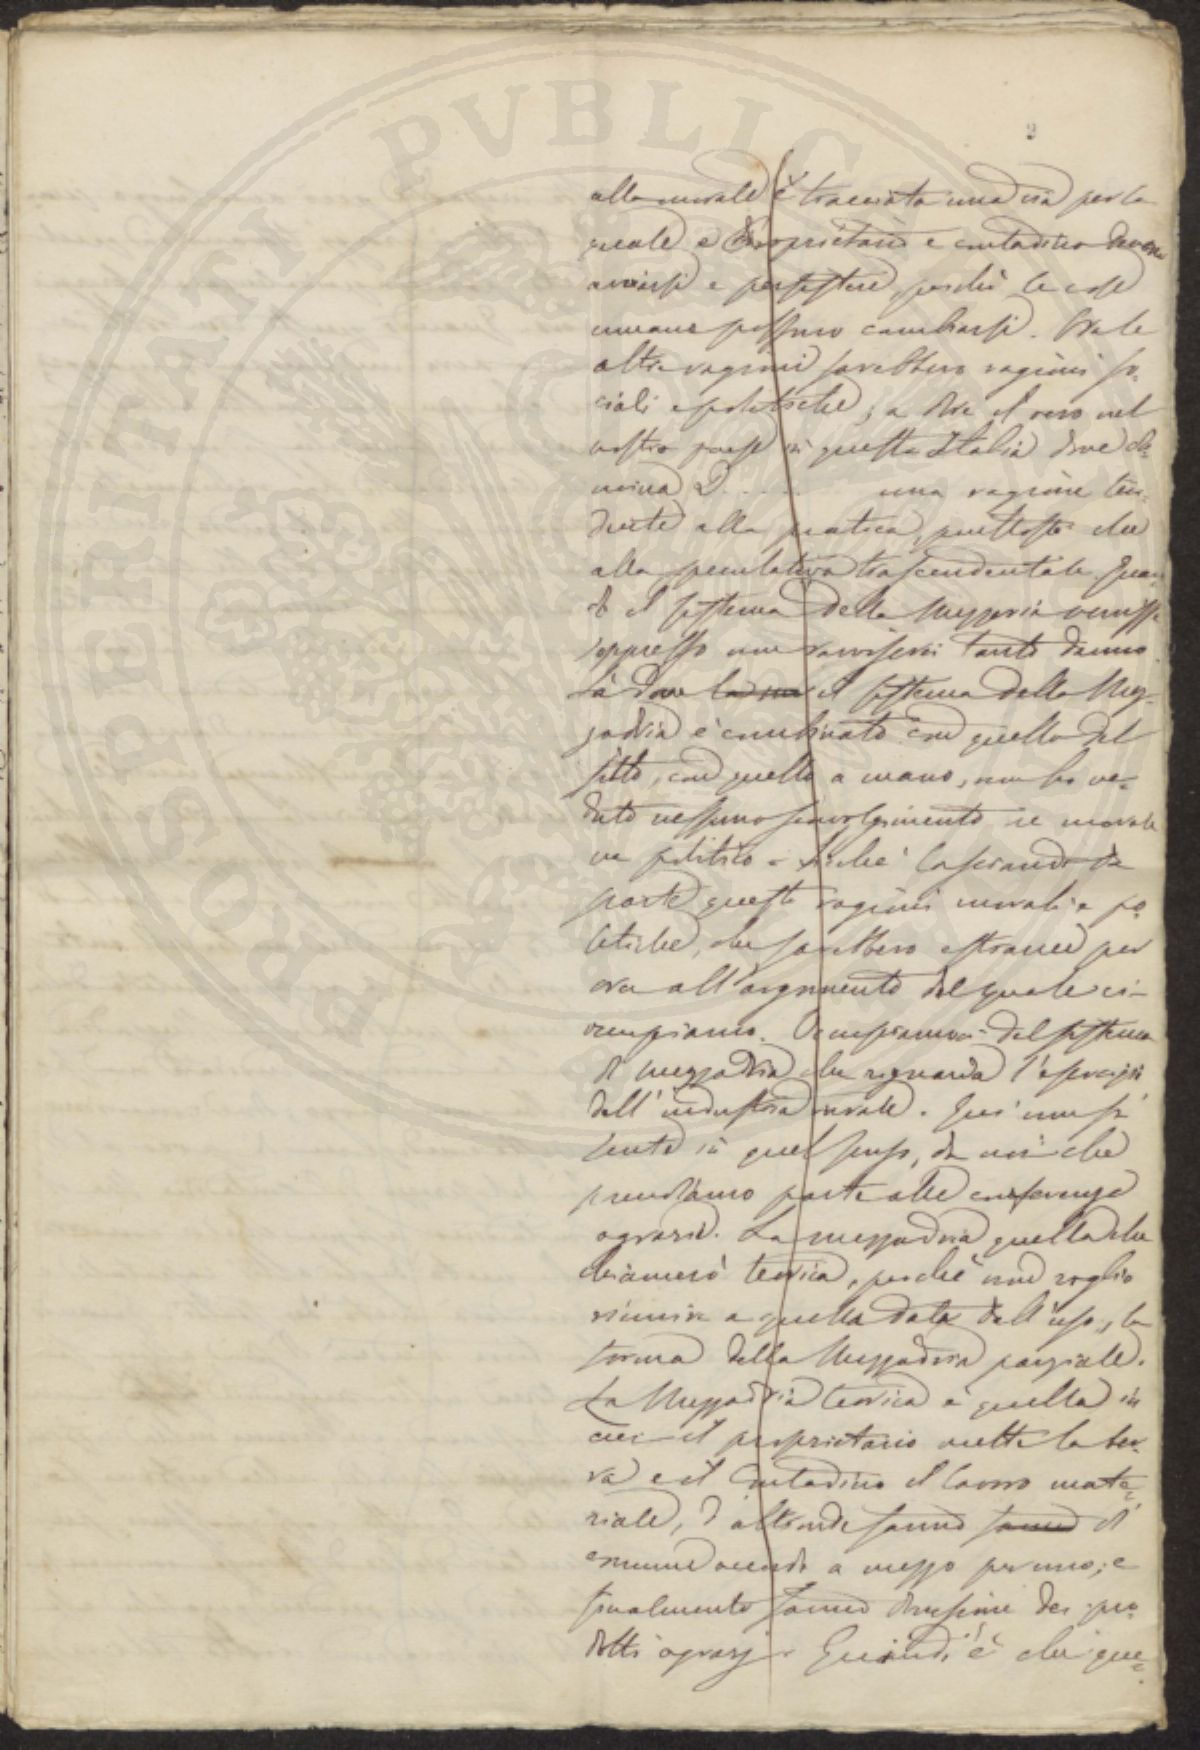 PUBLIC
POSPERITATI
2
alla morale è tracciata una via per la
quale e Proprietario e contadino devono
avviarsi e persistere, perchè le cose
umane possono cambiarsi. Ora le
altre ragioni sarebbero ragioni so-
ciali e politiche, a dire il vero nel
nostro paese in questa Italia dove do-
mina D..... una ragione ten-
dente alla pratica, piuttosto che
alla speculativa trascendentale quan-
do il sistema della Mezzeria venisse
soppresso non ravviserei tanto danno.
Là dove la ma il sistema della Mez-
zadria è combinato con quello del
fitto, con quello a mano, non ho ve-
duto nessuno sconvolgimento nè morale
nè politico. sicchè lasciando da
parte queste ragioni morali e po-
litiche, che sarebbero estranee per
ora all'argomento del quale ci
occupiamo. Occupiamoci del sistema
di mezzadria che riguarda l'esercizio
dell'industria rurale. Qui non si
sente in quel senso, da noi che
prendiamo parte alle conferenze
agrarie. La mezzadria quella che
chiamerò teorica, perchè non voglio
venire a quella data dall'uso, la
forma della Mezzadria parziale.
La Mezzadria teorica è quella in
cui il proprietario mette la ter-
ra e il Contadino il lavoro mate-
riale, d'altronde fanno fanno di
comune a mezzo per uno, e
finalmente fanno divisione dei pro-
dotti agrarj. Quindi è che que-